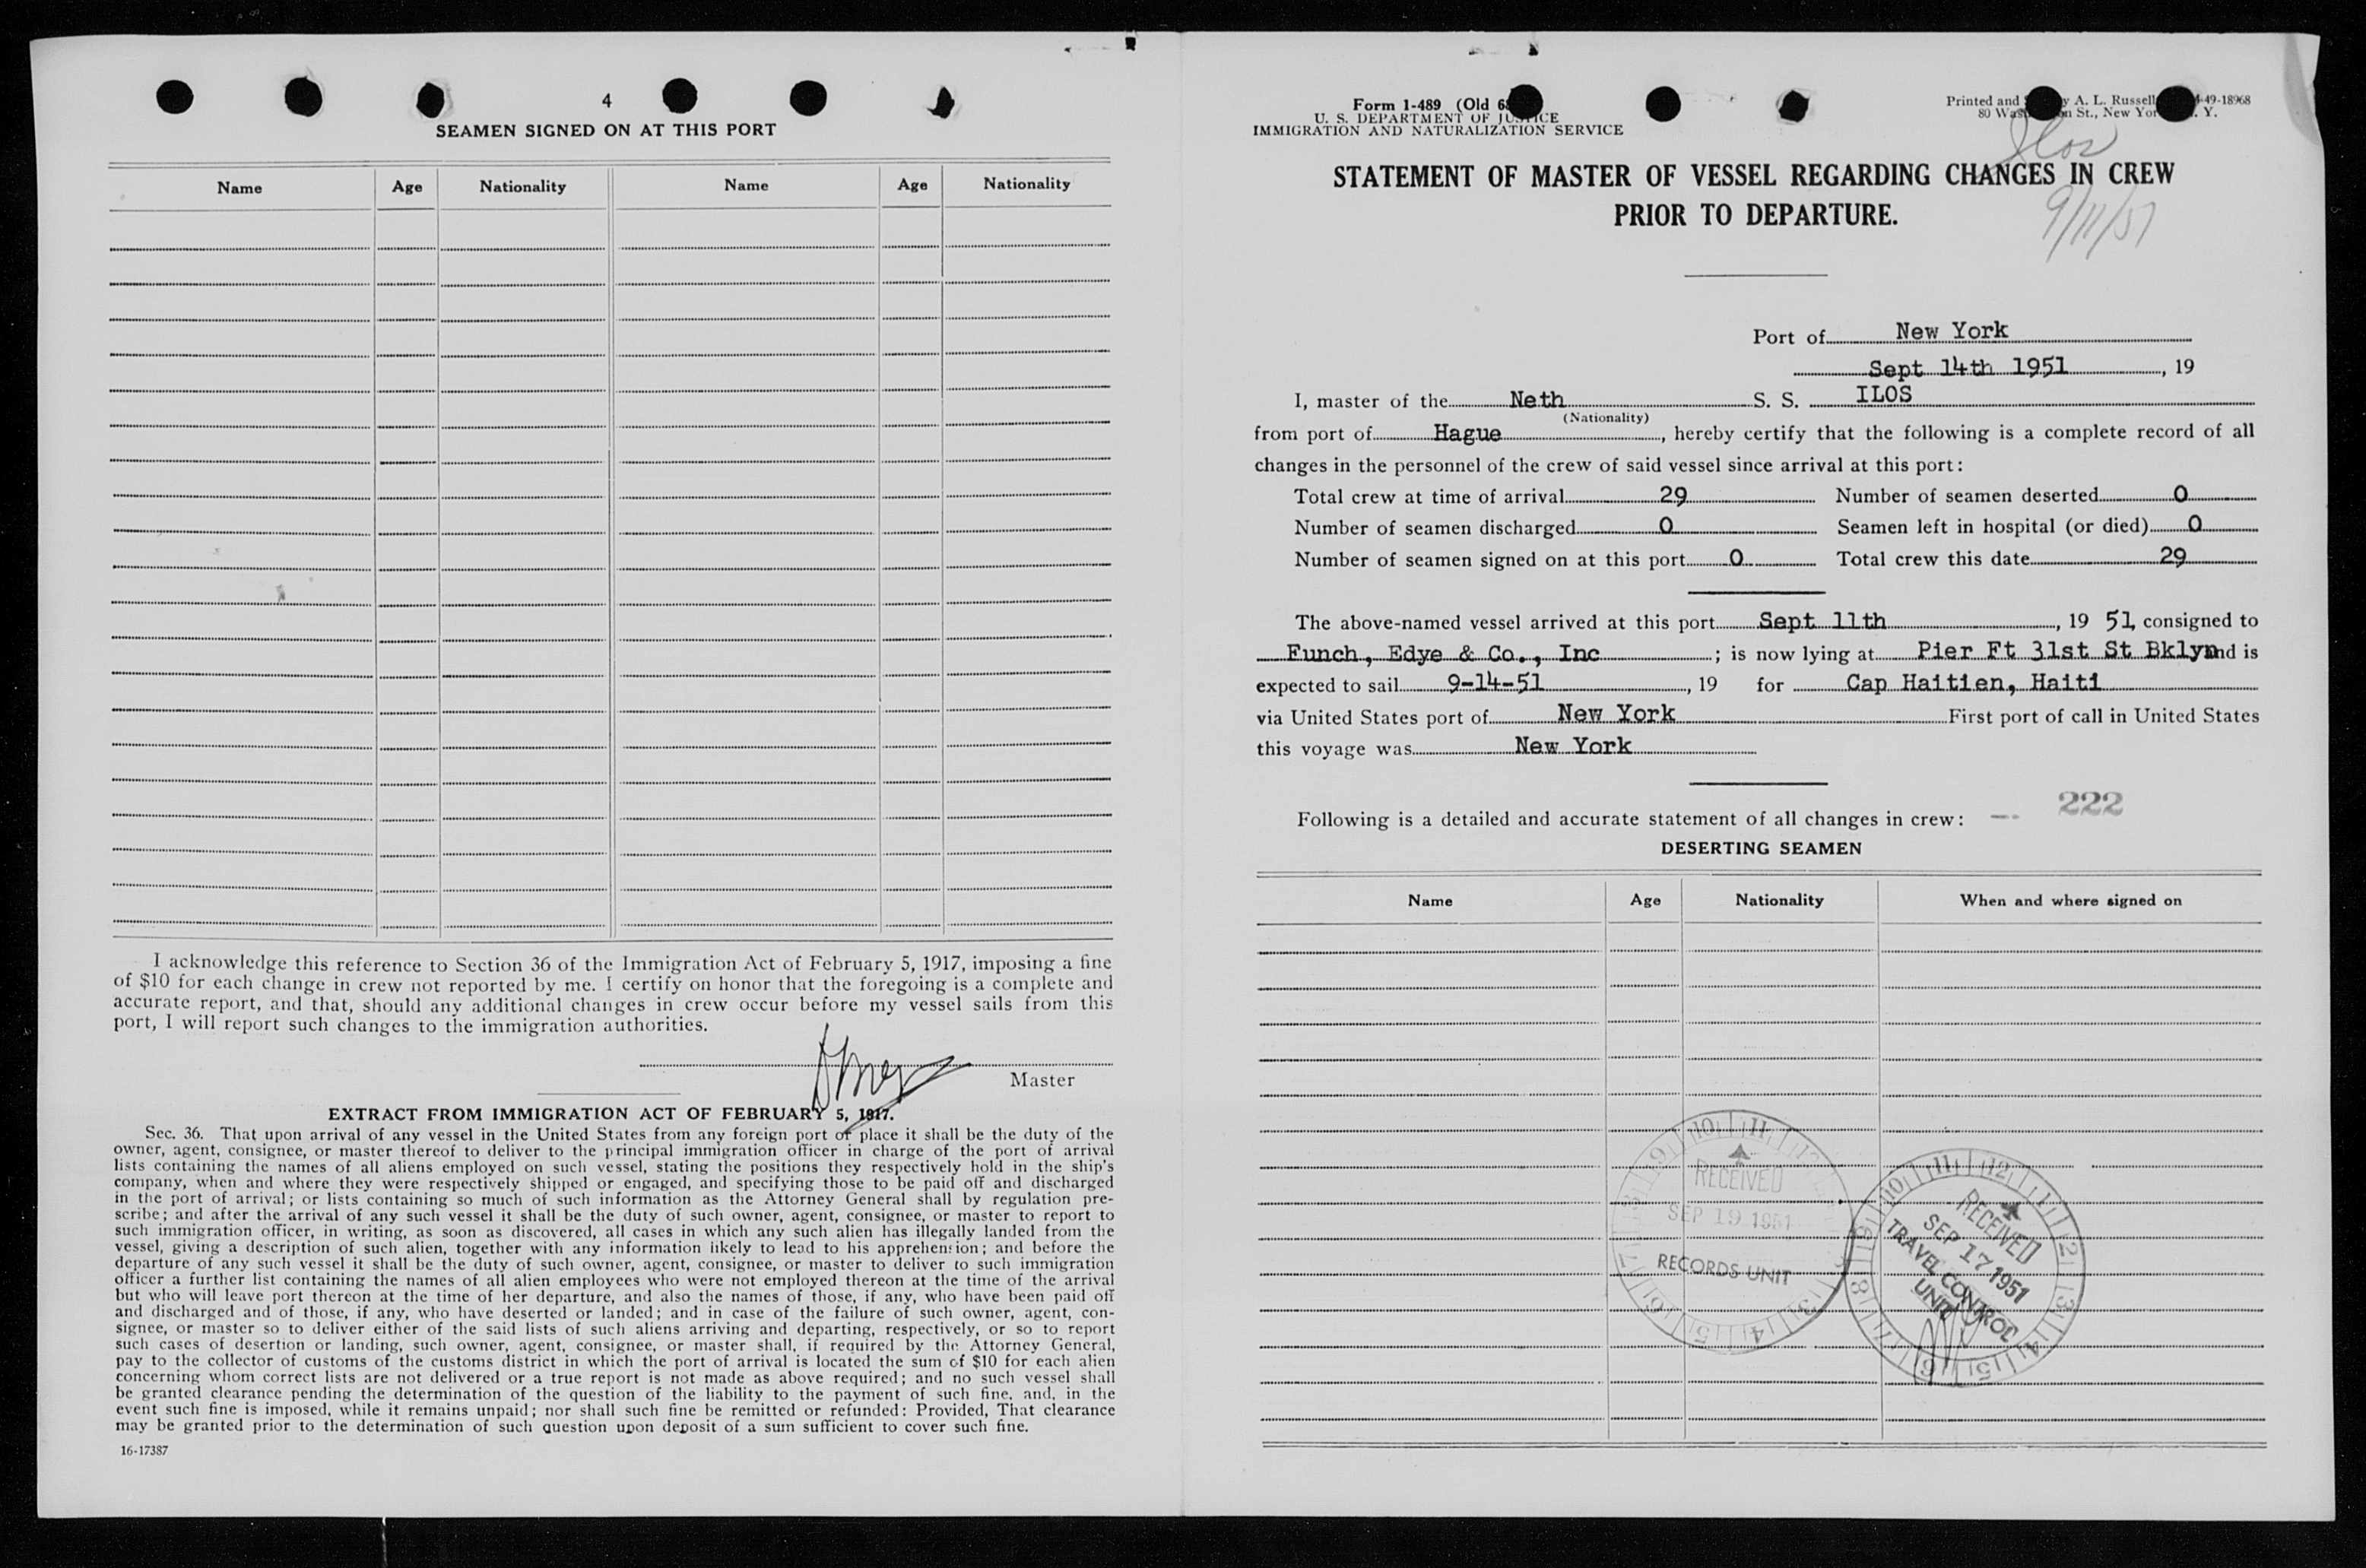 4
SEAMEN SIGNED ON AT THIS PORT
Name Age Nationality Name Age Nationality
I acknowledge this reference to Section 36 of the Immigration Act of February 5, 1917, imposing a fine
of $10 for each change in crew not reported by me. I certify on honor that the foregoing is a complete and
accurate report, and that, should any additional changes in crew occur before my vessel sails from this
port, I will report such changes to the immigration authorities.
Master
EXTRACT FROM IMMIGRATION ACT OF FEBRUARY 5, 1917.
Sec. 36. That upon arrival of any vessel in the United States from any foreign port or place it shall be the duty of the
owner, agent, consignee, or master thereof to deliver to the principal immigration officer in charge of the port of arrival
lists containing the names of all aliens employed on such vessel, stating the positions they respectively hold in the ship's
company, when and where they were respectively shipped or engaged, and specifying those to be paid off and discharged
in the port of arrival; or lists containing so much of such information as the Attorney General shall by regulation pre-
scribe; and after the arrival of any such vessel it shall be the duty of such owner, agent, consignee, or master to report to
such immigration officer, in writing, as soon as discovered, all cases in which any such alien has illegally landed from the
vessel, giving a description of such alien, together with any information likely to lead to his apprehension; and before the
departure of any such vessel it shall be the duty of such owner, agent, consignee, or master to deliver to such immigration
officer a further list containing the names of all alien employees who were not employed thereon at the time of the arrival
but who will leave port thereon at the time of her departure, and also the names of those, if any, who have been paid off
and discharged and of those, if any, who have deserted or landed; and in case of the failure of such owner, agent, con-
signee, or master so to deliver either of the said lists of such aliens arriving and departing, respectively, or so to report
such cases of desertion or landing, such owner, agent, consignee, or master shall, if required by the Attorney General,
pay to the collector of customs of the customs district in which the port of arrival is located the sum of $10 for each alien
concerning whom correct lists are not delivered or a true report is not made as above required; and no such vessel shall
be granted clearance pending the determination of the question of the liability to the payment of such fine, and, in the
event such fine is imposed, while it remains unpaid; nor shall such fine be remitted or refunded: Provided, That clearance
may be granted prior to the determination of such question upon deposit of a sum sufficient to cover such fine.
16-17387
Form 1-489 (Old
U. S. DEPARTMENT OF JUSTICE
IMMIGRATION AND NATURALIZATION SERVICE
Printed and A. L. Russell 49-18968
80 St., New York Y.
Ilos
9/11/51
STATEMENT OF MASTER OF VESSEL REGARDING CHANGES IN CREW
PRIOR TO DEPARTURE.
Port of New York
Sept 14th 1951, 19
I, master of the Neth S. S. ILOS
(Nationality)
from port of Hague, hereby certify that the following is a complete record of all
changes in the personnel of the crew of said vessel since arrival at this port:
Total crew at time of arrival 29 Number of seamen deserted 0
Number of seamen discharged 0 Seamen left in hospital (or died) 0
Number of seamen signed on at this port 0 Total crew this date 29
The above-named vessel arrived at this port Sept 11th, 19 51, consigned to
Funch, Edye & Co., Inc; is now lying at Pier Ft 31st St Bklyn and is
expected to sail 9-14-51, 19 for Cap Haitien, Haiti
via United States port of New York First port of call in United States
this voyage was New York
222
Following is a detailed and accurate statement of all changes in crew:
DESERTING SEAMEN
Name Age Nationality When and where signed on
RECEIVED
SEP 19 1951
RECORDS UNIT
RECEIVED
SEP 17 1951
TRAVEL CONTROL
UNIT